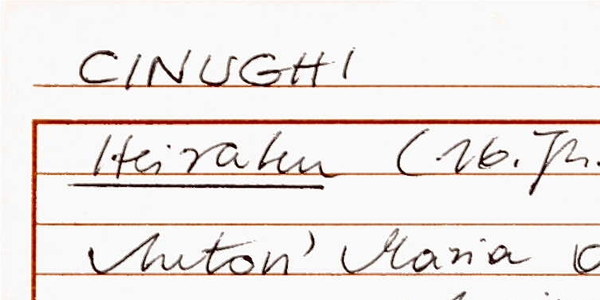 CINUGHI
Heiraten (16. Jh.
Anton' Maria